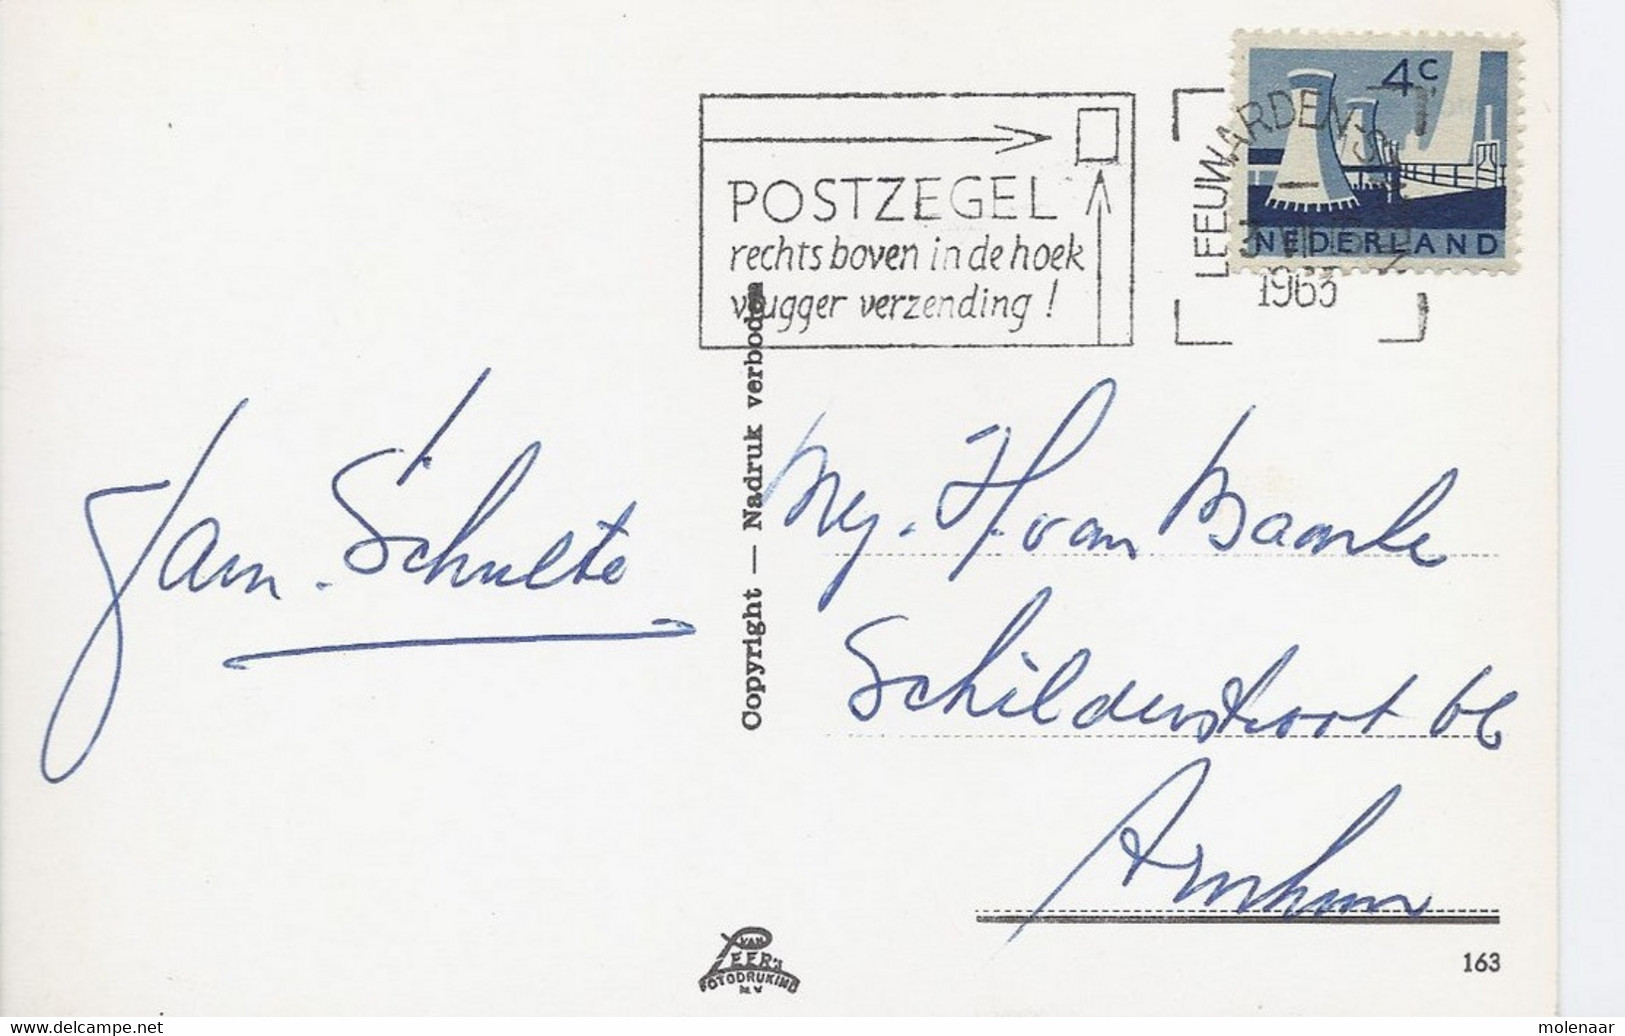 4c
NEDERLAND
LEEUWARDEN STATION
1963
POSTZEGEL
rechts boven in de hoek
vlugger verzending !
Copyright — Nadruk verboden
Jan. Schulte
Mej. H. van Baarle
Schilderstraat 6e
Arnhem
VAN
LEER'S
FOTODRUKIND
N.V.
163
molenaar